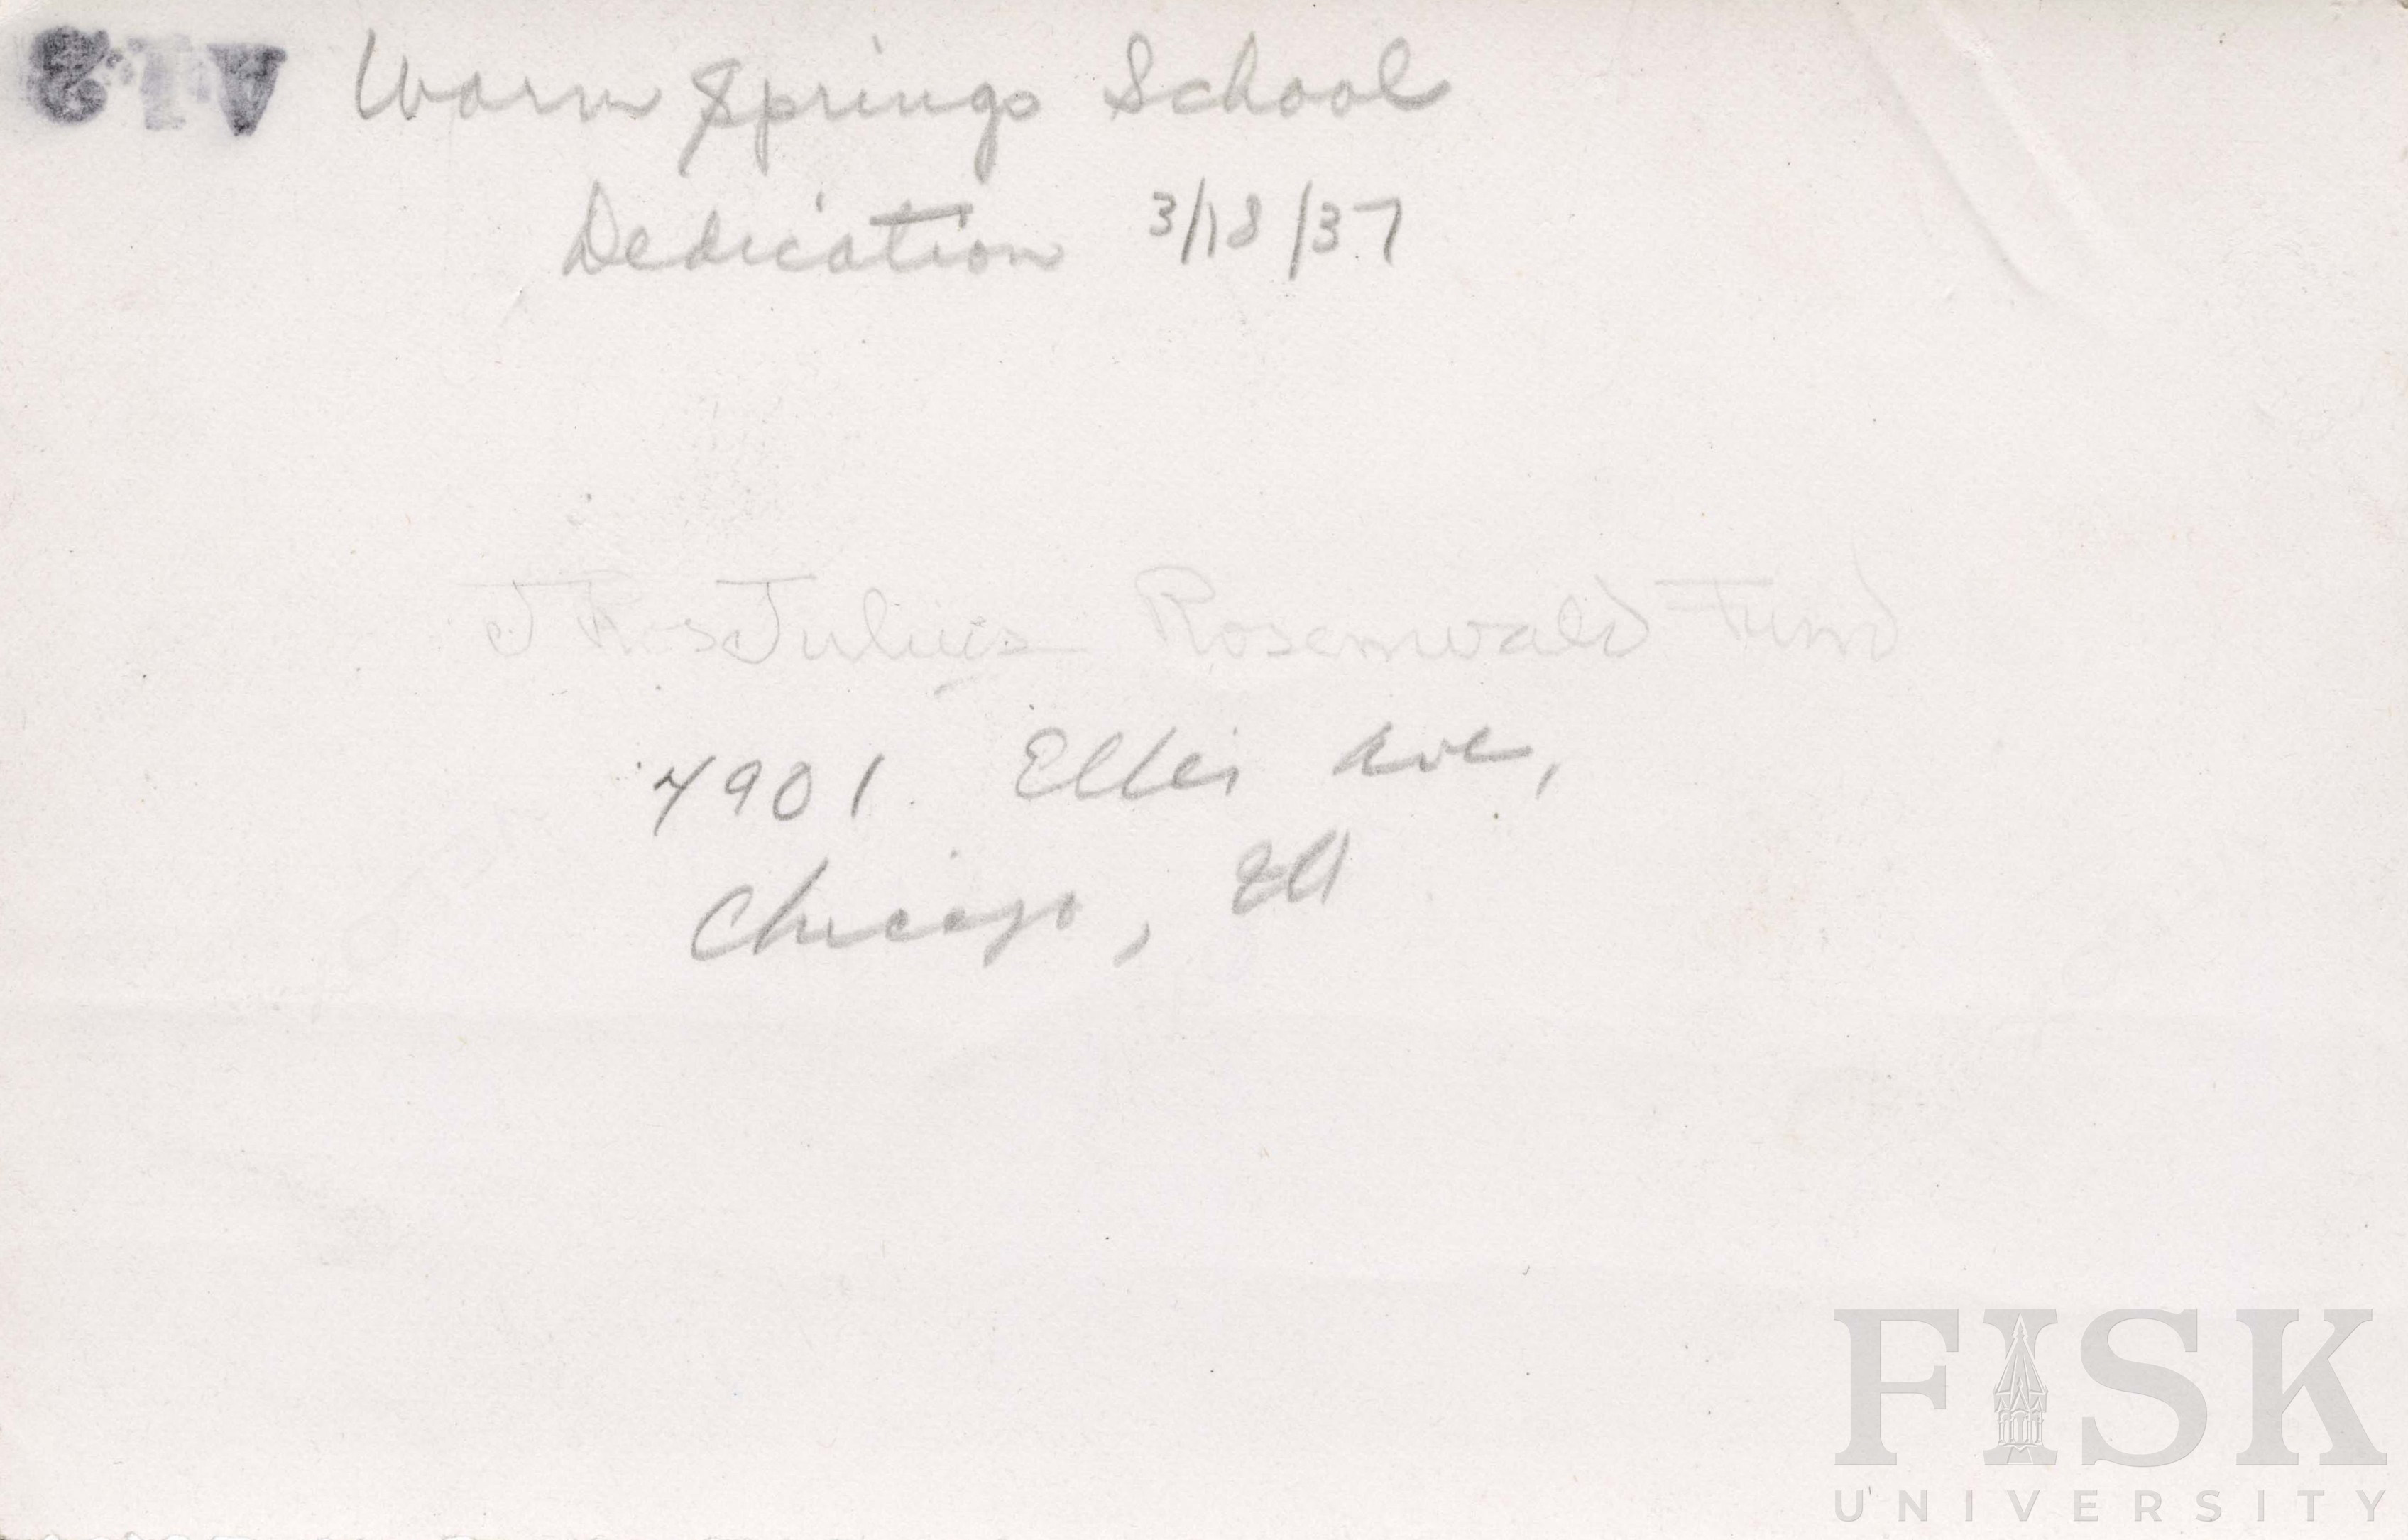 Warm Springs School
Dedication 3/18/37
Julius Rosenwald Fund
4901 Ellis Ave,
Chicago, Ill
FISK
UNIVERSITY